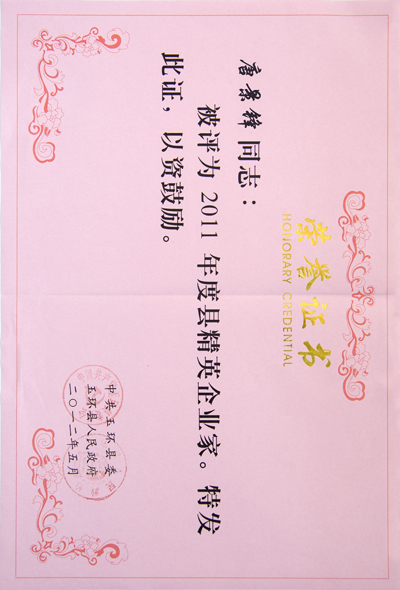 荣誉证书
HONORARY CREDENTIAL
唐景锋 同志：
被评为 2011 年度县精英企业家。特发
此证，以资鼓励。
中共玉环县委
玉环县人民政府
二〇一二年五月